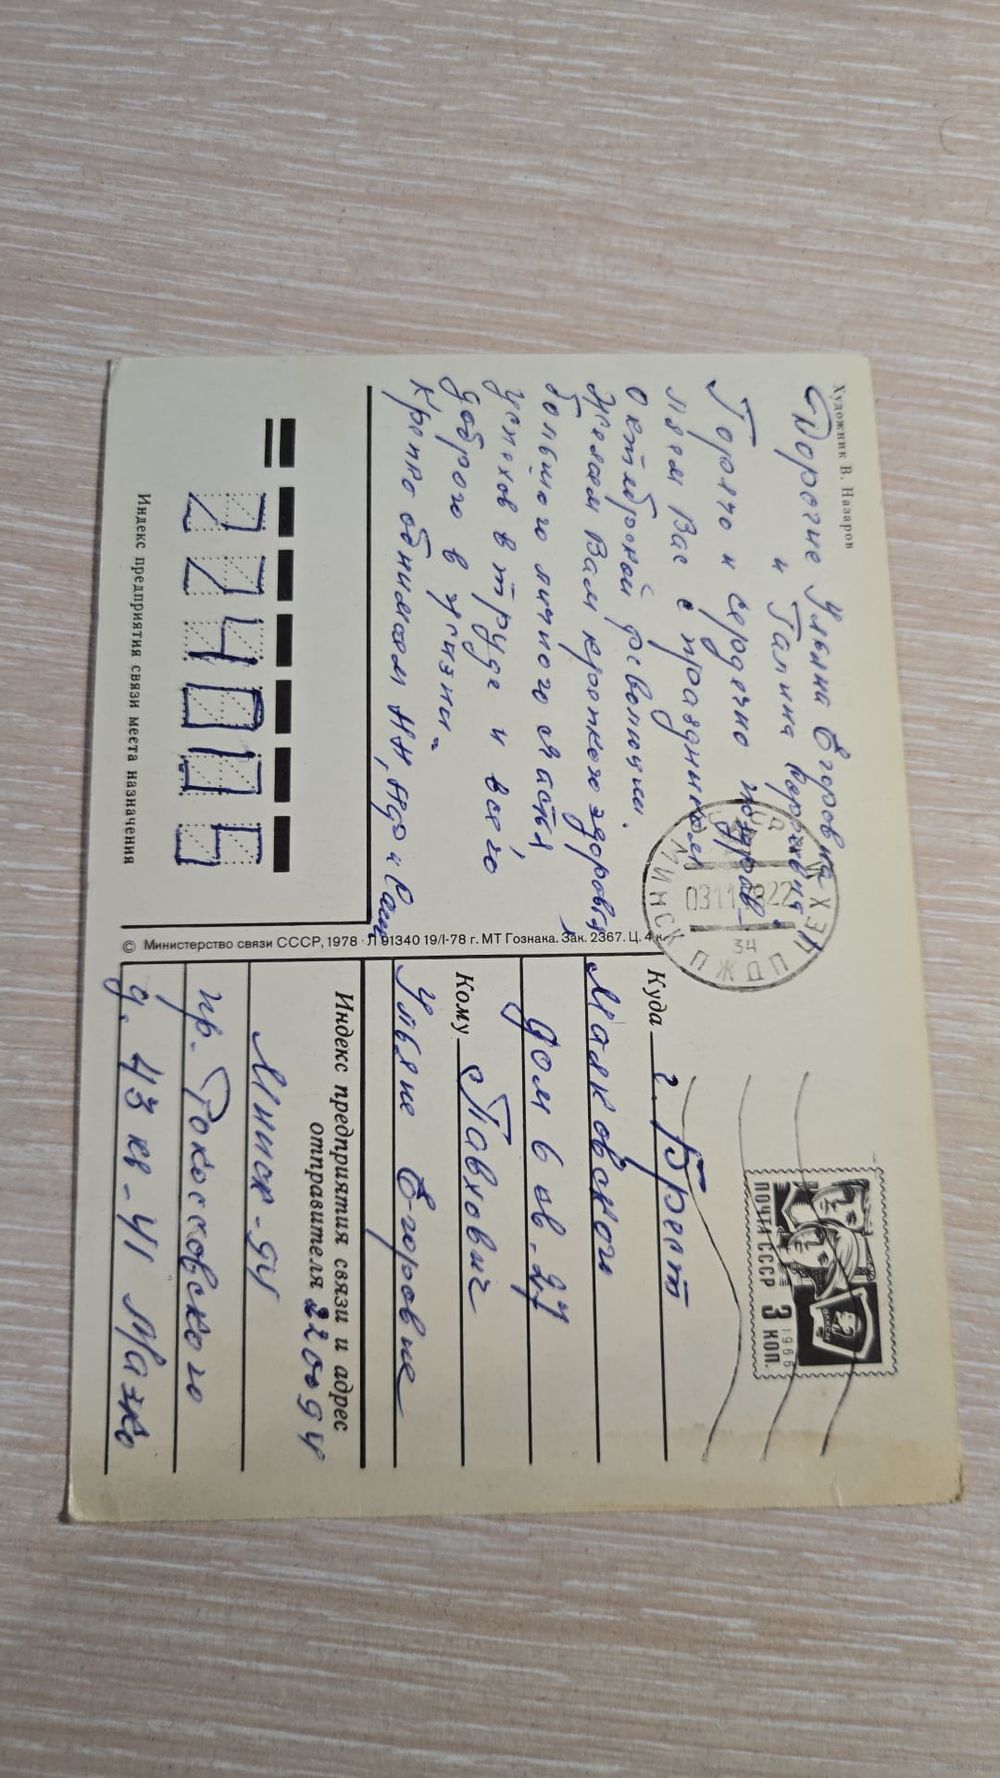 Художник В. Назаров
Дорогие Ульяна Егоровна
и Галина
Горячо и сердечно поздрав-
ляем Вас с праздником
Октябрьской революции.
Желаем Вам крепкого здоровья
большого личного счастья
успехов в труде и всего
доброго в жизни.
Крепко обнимаем
224015
Индекс предприятия связи места назначения
© Министерство связи СССР, 1978 · Л 91340 19/I-78 г. МТ Гознака. Зак. 2367. Ц. 4 к.
МИНСК
ПЖДП
34
ПОЧТА СССР 3 КОП.
1966
ВЛКСМ
Куда г. Брест
Маяковского
дом 6 кв. 27
Кому Павлович
Ульяне Егоровне
Индекс предприятия связи и адрес
отправителя 220094
Минск-94
пр. Рокоссовского
д. 43 кв-41 Мажко
www.ay.by